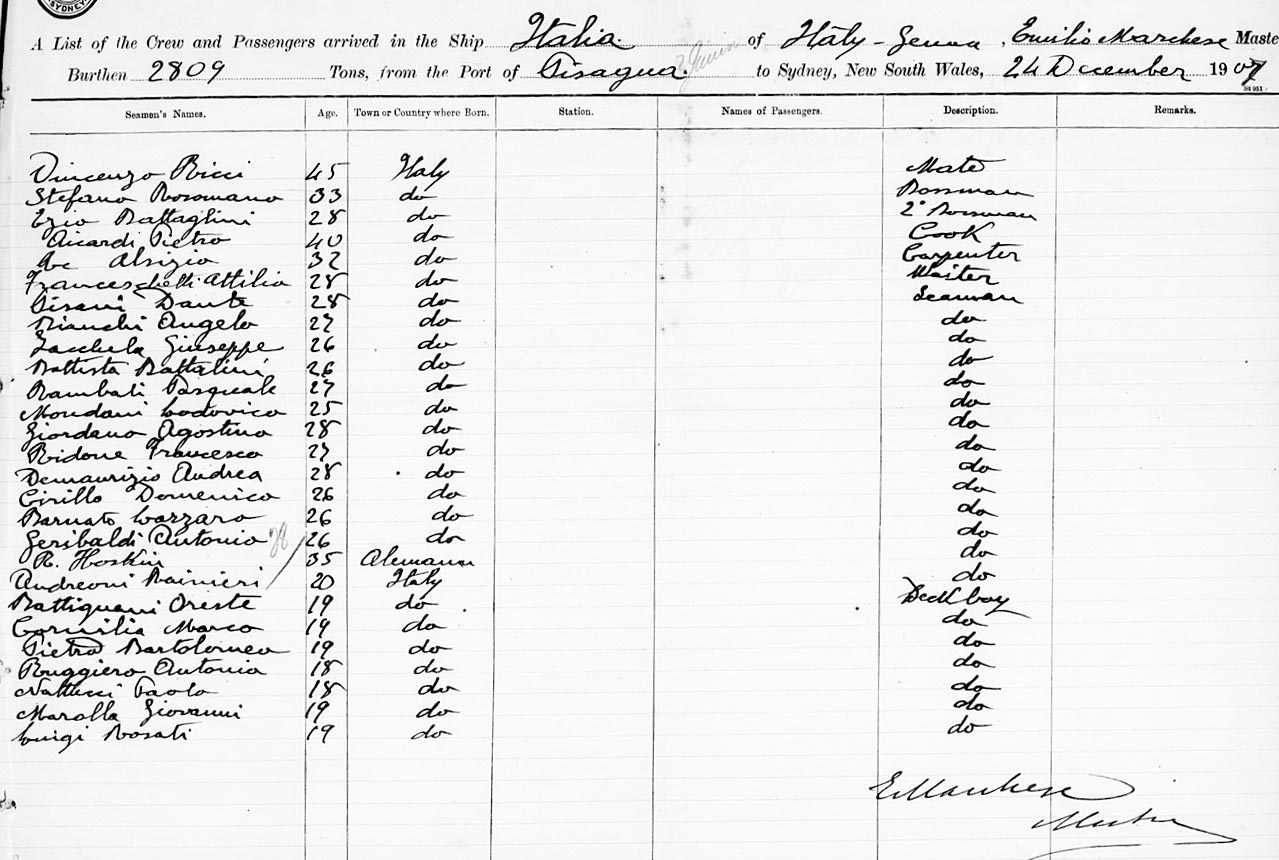 SYDNEY
A List of the Crew and Passengers arrived in the Ship Italia of Italy - Genoa, Emilio Marchese Maste
Burthen 2809 Tons, from the Port of Pisagua. to Sydney, New South Wales, 24 December 1907
Seamen's Names. Age. Town or Country where Born. Station. Names of Passengers. Description. Remarks.
Vincenzo Ricci 45 Italy Mate
Stefano Rosomano 33 do Bossman
Ezio Battaglini 28 do 2° Bossman
Aicardi Pietro 40 do Cook
Alsizio 32 do Carpenter
Franceschetti Attilio 28 do Waiter
Pisani Dante 28 do Seaman
Bianchi Angelo 27 do do
Giuseppe 26 do do
Battista Battalini 26 do do
Rambati Pasquale 27 do do
Mondani Lodovico 25 do do
Giordano Agostino 28 do do
Ridone Francesco 27 do do
Demaurizio Andrea 28 do do
Cirillo Domenico 26 do do
Barnato Lazzaro 26 do do
Geribaldi Antonio 26 do do
R. Hoskin 35 Alemann do
Andreoni Rainieri 20 Italy do
Battignani Oreste 19 do Deck boy
Cornilia Marco 19 do do
Pietro Bartolomeo 19 do do
Ruggiero Antonio 18 do do
Nattucci Paolo 18 do do
Marolla Giovanni 19 do do
Luigi Rosati 19 do do
E Marchese
Master